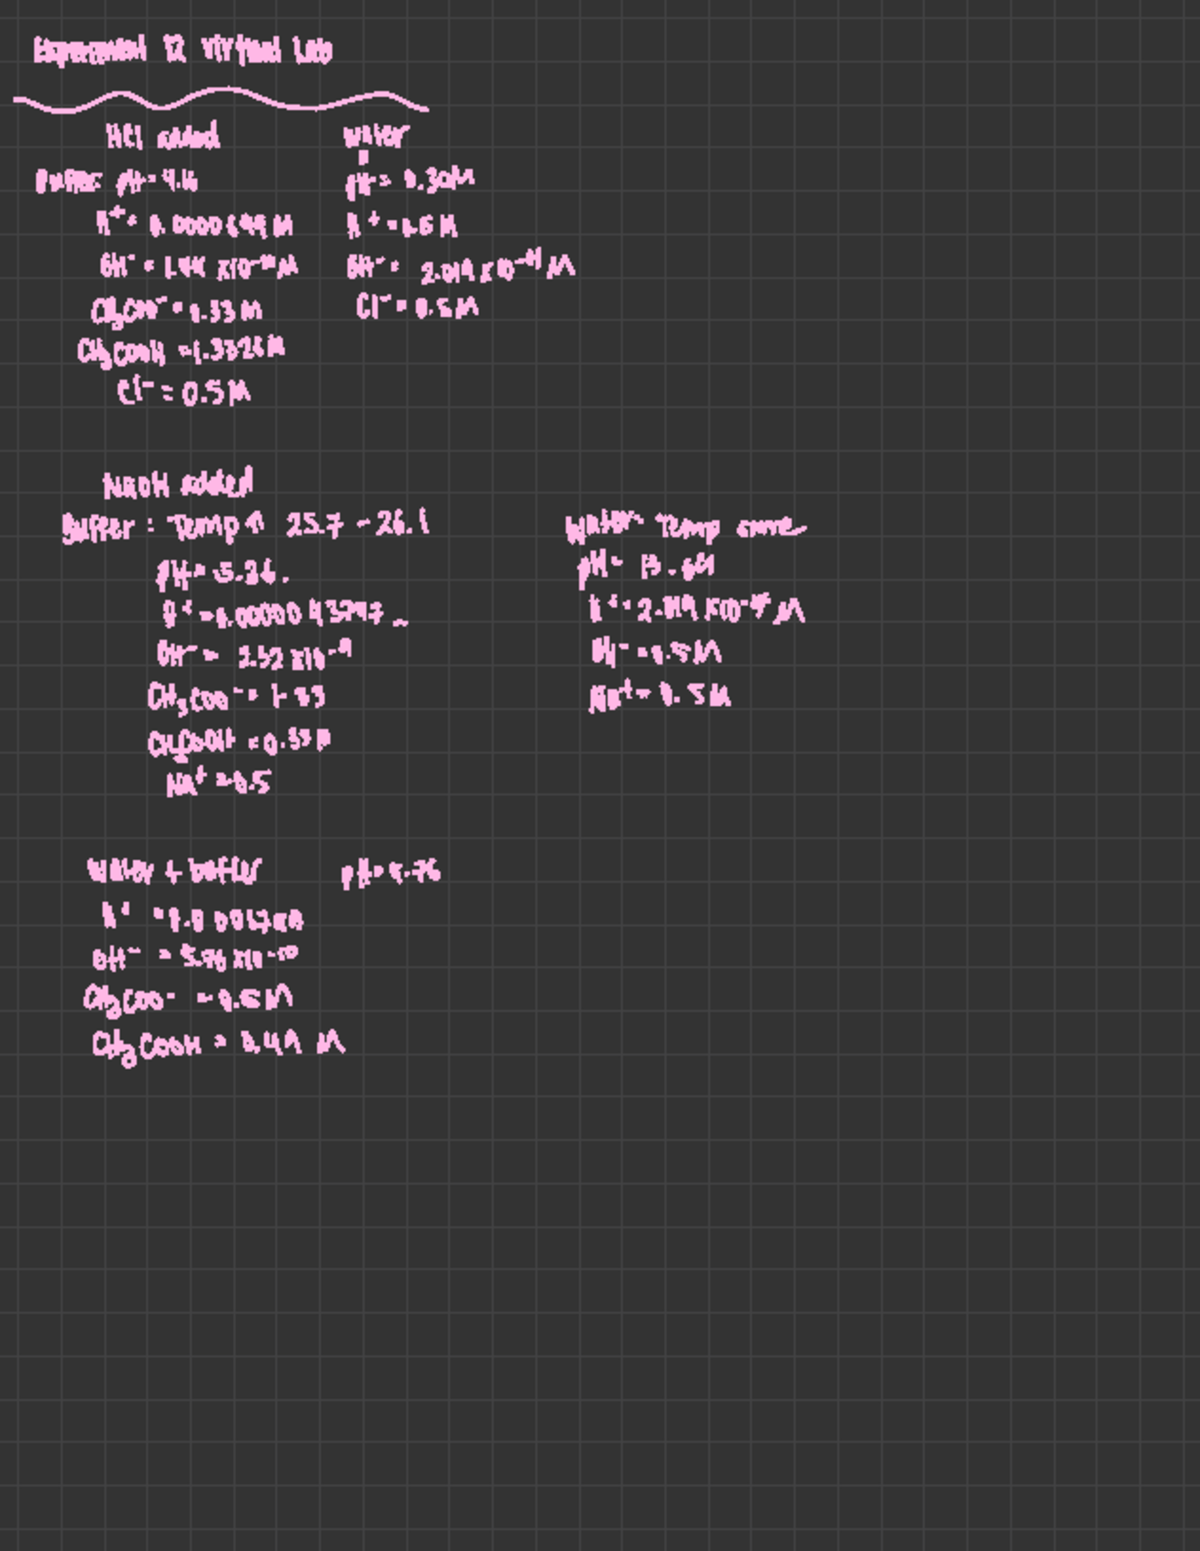 Experiment 12 Virtual Lab
HCl added
Water
Buffer: pH = 4.16
H⁺ = 0.0000699 M
OH⁻ = 1.44 x10⁻¹⁰ M
CH₃COO⁻ = 0.33 M
CH₃COOH = 1.3326 M
Cl⁻ = 0.5 M
pH = 0.30
H⁺ = 0.5 M
OH⁻ = 2.019 x 10⁻¹⁴ M
Cl⁻ = 0.5 M
NaOH added
Buffer : Temp ↑ 25.7 - 26.1
pH = 5.36.
H⁺ = 0.00000 43797
OH⁻ = 2.52 x10⁻⁹
CH₃COO⁻ = 1.33
CH₃COOH = 0.33 M
NA⁺ = 0.5
Water Temp same
pH = 13.69
H⁺ = 2.019 x10⁻¹⁴ M
OH⁻ = 0.5 M
Na⁺ = 0.5 M
Water + buffer pH = 4.76
H⁺ =
OH⁻ = 5.76 x10⁻¹⁰
CH₃COO⁻ = 0.5 M
CH₃COOH = 0.49 M